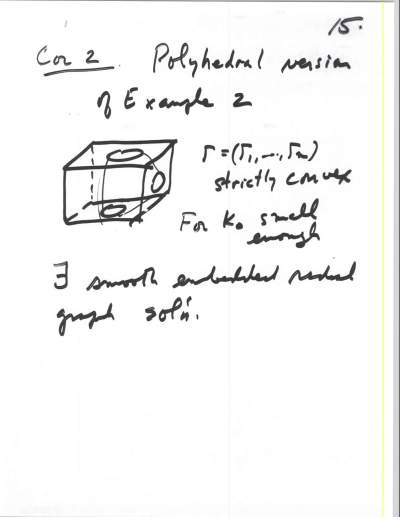 15.
Cor 2. Polyhedral version
of Example 2
Γ = (Γ₁, ..., Γₘ)
strictly convex
For K₀ small
enough
∃ smooth embedded radial
graph sol'n.